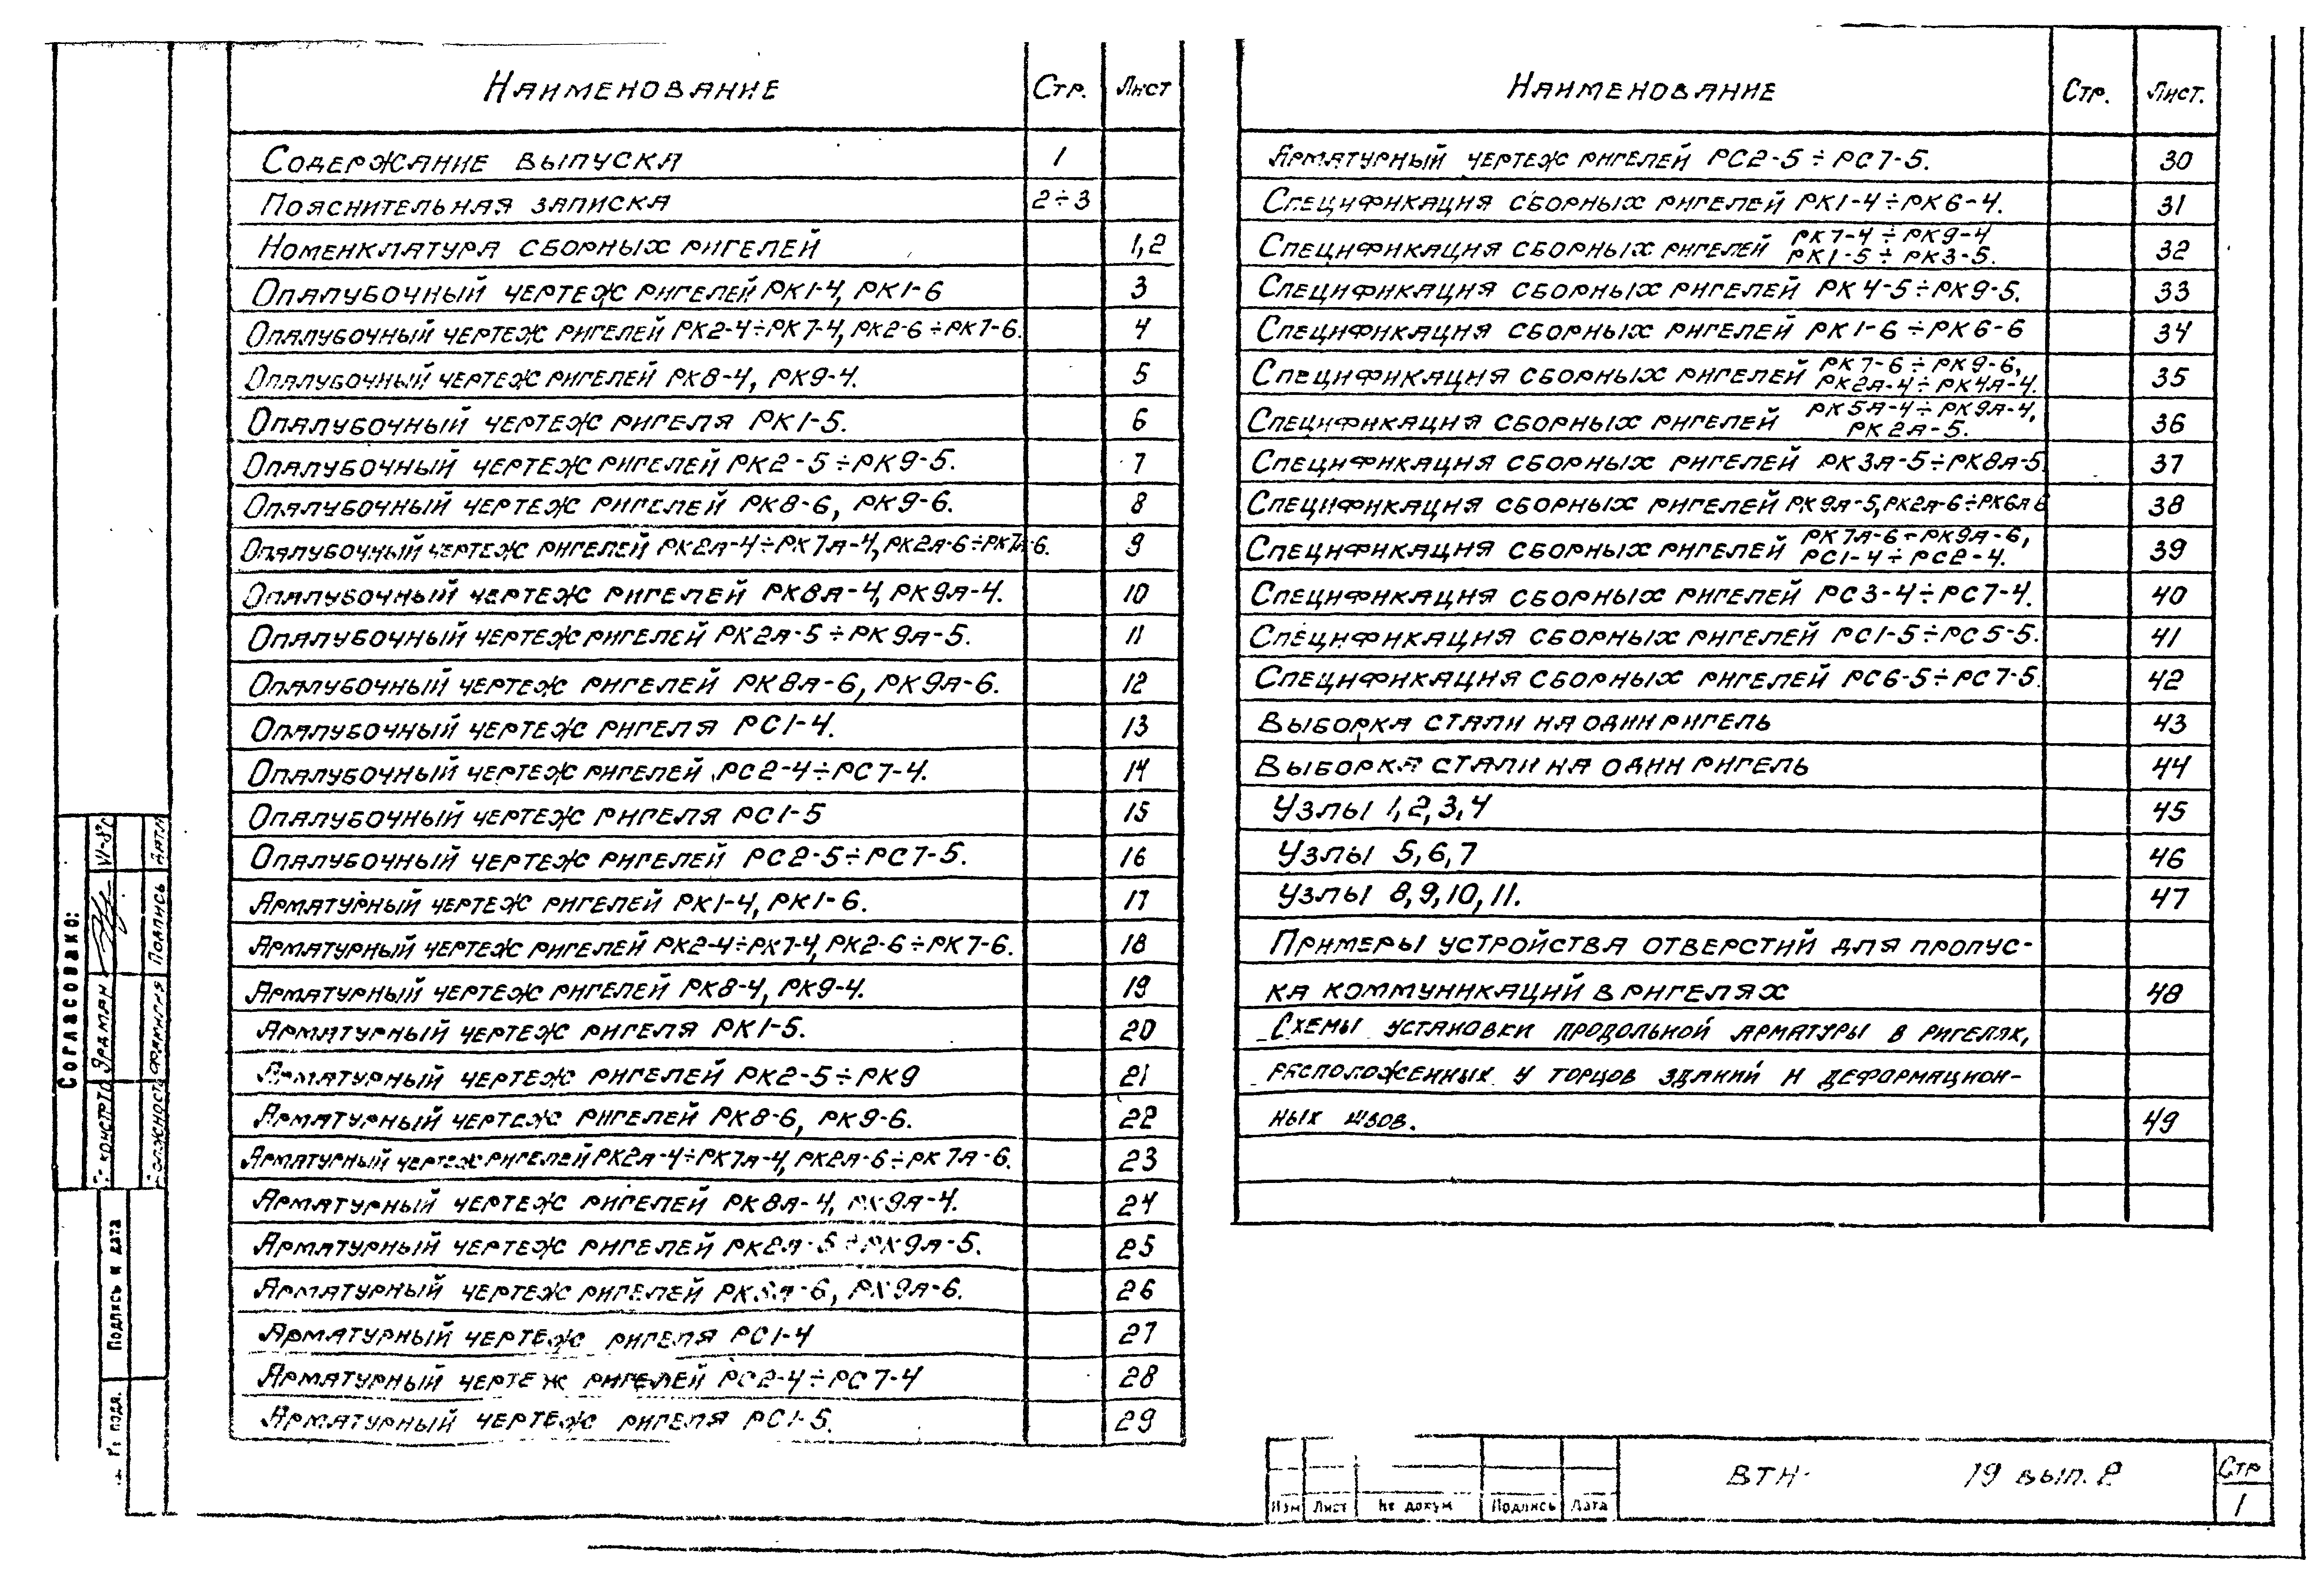 Наименование Стр. Лист
Содержание выпуска 1
Пояснительная записка 2÷3
Номенклатура сборных ригелей 1,2
Опалубочный чертеж ригелей РК1-4, РК1-6 3
Опалубочный чертеж ригелей РК2-4÷РК7-4, РК2-6÷РК7-6. 4
Опалубочный чертеж ригелей РК8-4, РК9-4. 5
Опалубочный чертеж ригеля РК1-5. 6
Опалубочный чертеж ригелей РК2-5÷РК9-5. 7
Опалубочный чертеж ригелей РК8-6, РК9-6. 8
Опалубочный чертеж ригелей РК2а-4÷РК7а-4, РК2а-6÷РК7а-6. 9
Опалубочный чертеж ригелей РК8а-4, РК9а-4. 10
Опалубочный чертеж ригелей РК2а-5÷РК9а-5. 11
Опалубочный чертеж ригелей РК8а-6, РК9а-6. 12
Опалубочный чертеж ригеля РС1-4. 13
Опалубочный чертеж ригелей РС2-4÷РС7-4. 14
Опалубочный чертеж ригеля РС1-5 15
Опалубочный чертеж ригелей РС2-5÷РС7-5. 16
Арматурный чертеж ригелей РК1-4, РК1-6. 17
Арматурный чертеж ригелей РК2-4÷РК7-4, РК2-6÷РК7-6. 18
Арматурный чертеж ригелей РК8-4, РК9-4. 19
Арматурный чертеж ригеля РК1-5. 20
Арматурный чертеж ригелей РК2-5÷РК9 21
Арматурный чертеж ригелей РК8-6, РК9-6. 22
Арматурный чертеж ригелей РК2а-4÷РК7а-4, РК2а-6÷РК7а-6. 23
Арматурный чертеж ригелей РК8а-4, РК9а-4. 24
Арматурный чертеж ригелей РК2а-5÷РК9а-5. 25
Арматурный чертеж ригелей РК8а-6, РК9а-6. 26
Арматурный чертеж ригеля РС1-4 27
Арматурный чертеж ригелей РС2-4÷РС7-4 28
Арматурный чертеж ригеля РС1-5. 29
Наименование Стр. Лист.
Арматурный чертеж ригелей РС2-5÷РС7-5. 30
Спецификация сборных ригелей РК1-4÷РК6-4. 31
Спецификация сборных ригелей РК7-4÷РК9-4
РК1-5÷РК3-5. 32
Спецификация сборных ригелей РК4-5÷РК9-5. 33
Спецификация сборных ригелей РК1-6÷РК6-6 34
Спецификация сборных ригелей РК7-6÷РК9-6,
РК2а-4÷РК4а-4. 35
Спецификация сборных ригелей РК5а-4÷РК9а-4,
РК2а-5. 36
Спецификация сборных ригелей РК3а-5÷РК8а-5. 37
Спецификация сборных ригелей РК9а-5, РК2а-6÷РК6а 6 38
Спецификация сборных ригелей РК7а-6÷РК9а-6,
РС1-4÷РС2-4. 39
Спецификация сборных ригелей РС3-4÷РС7-4. 40
Спецификация сборных ригелей РС1-5÷РС5-5. 41
Спецификация сборных ригелей РС6-5÷РС7-5. 42
Выборка стали на один ригель 43
Выборка стали на один ригель 44
Узлы 1,2,3,4 45
Узлы 5,6,7 46
Узлы 8,9,10,11. 47
Примеры устройства отверстий для пропус-
ка коммуникаций в ригелях 48
Схемы установки продольной арматуры в ригелях,
расположенных у торцов зданий и деформацион-
ных швов. 49
Согласовано:
Эрдман
Должность Фамилия Подпись Дата
Подпись и дата
подл.
Изм Лист № докум Подпись Дата
ВТН- 19 вып. 2
Стр
1